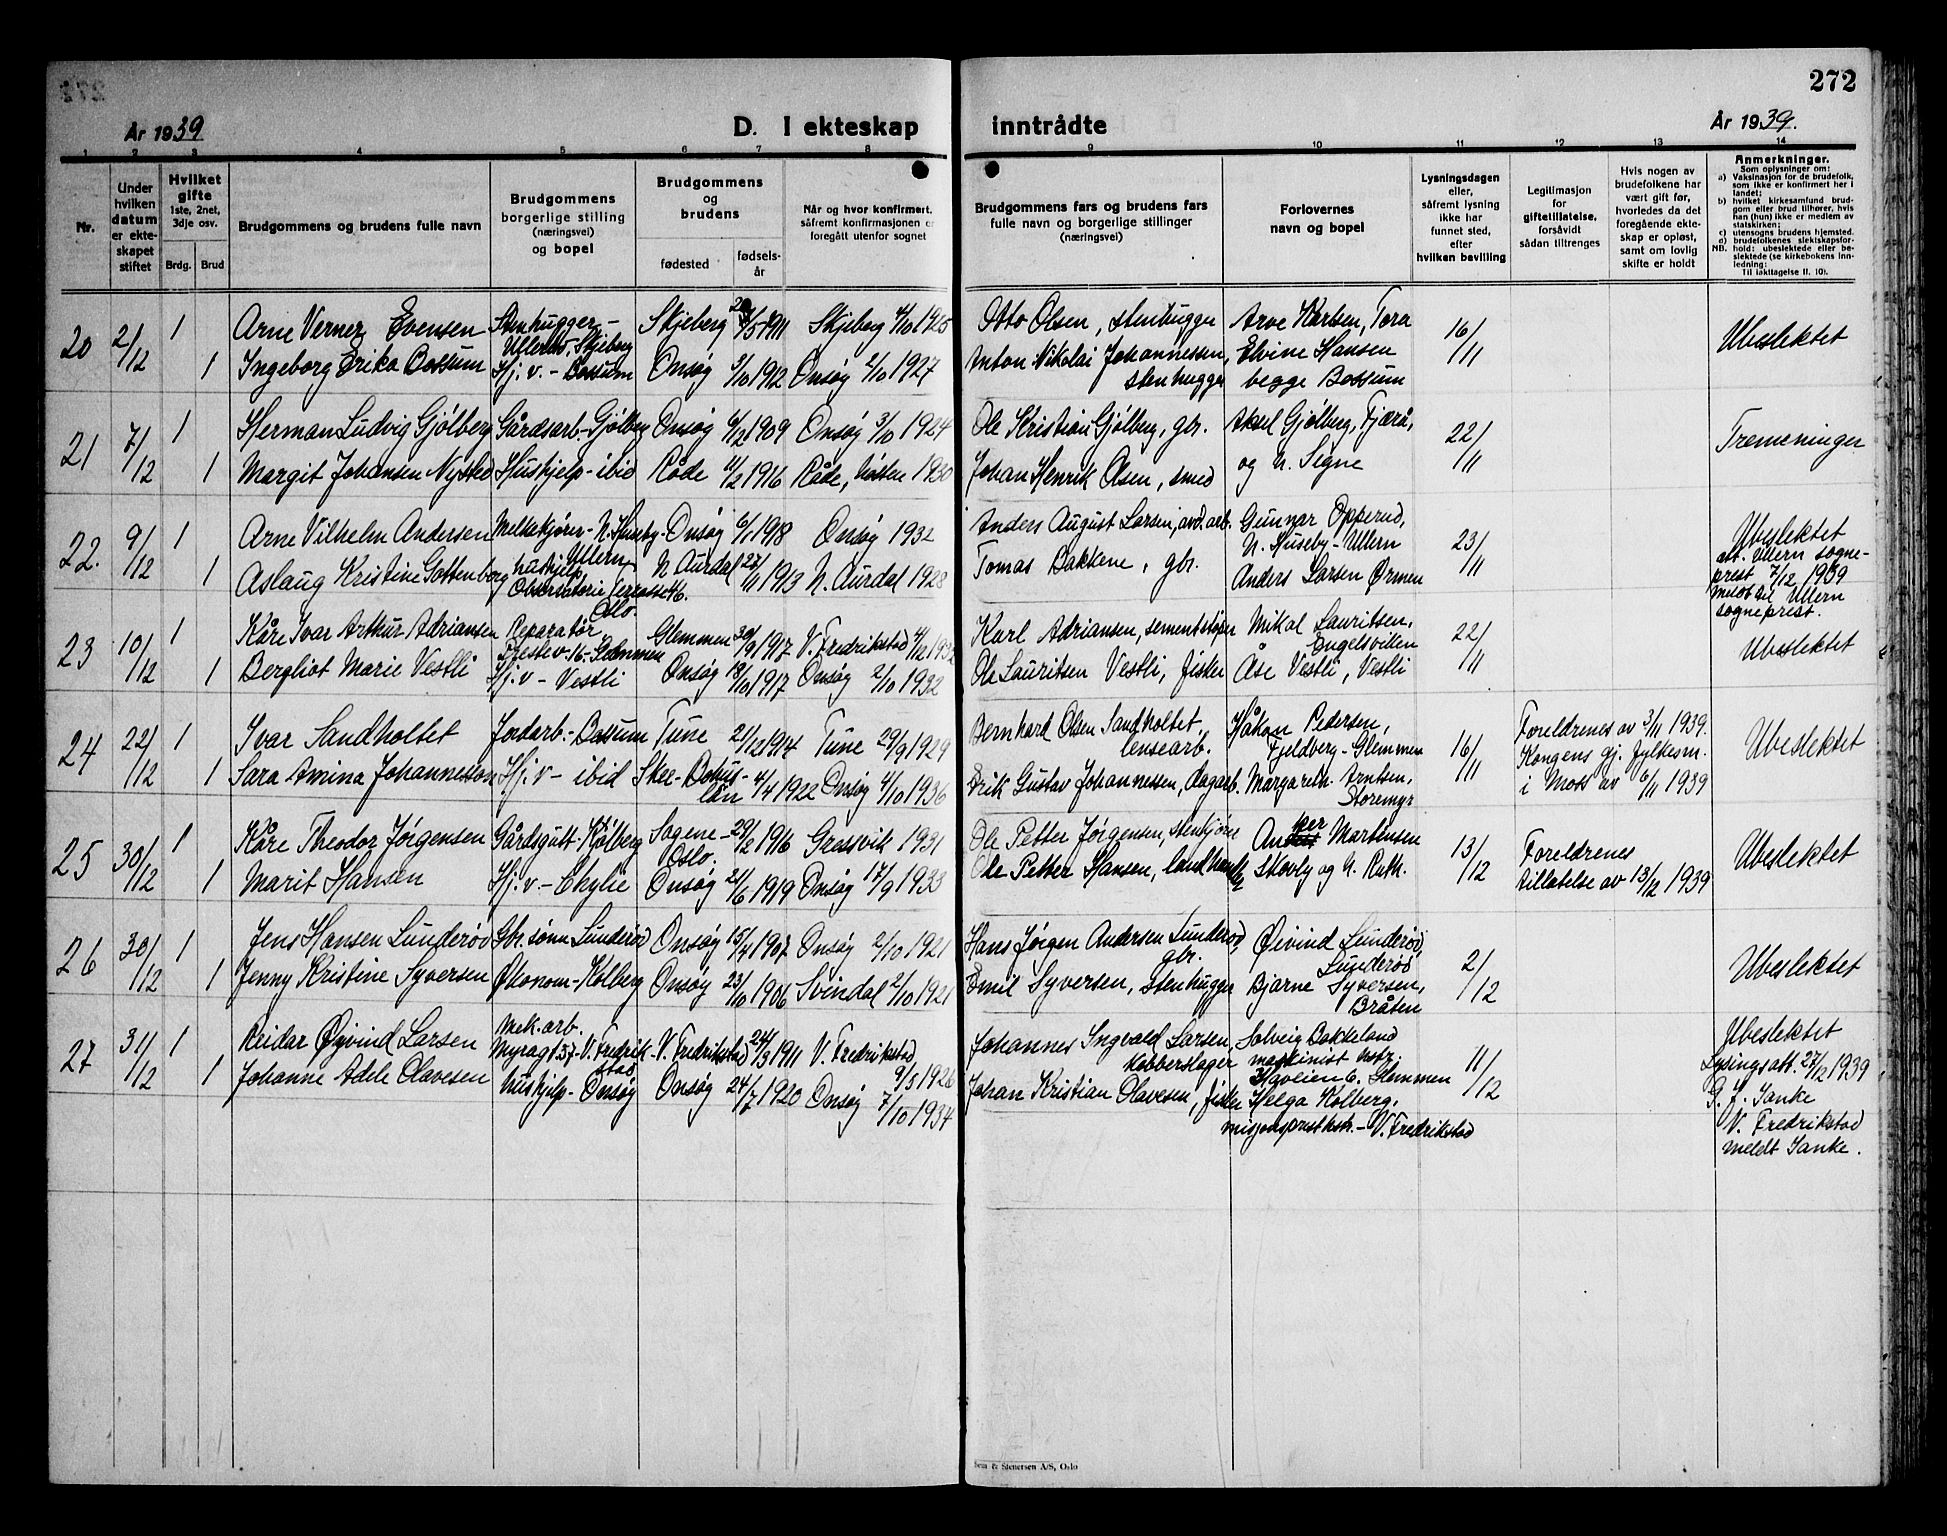 272
År 1939
D. I ekteskap inntrådte
År 1939.
1 2 3 4 5 6 7 8 9 10 11 12 13 14
Nr.
Under hvilken datum er ekteskapet stiftet
Hvilket gifte 1ste, 2net, 3dje osv.
Brdg. Brud
Brudgommens og brudens fulle navn
Brudgommens borgerlige stilling (næringsvei) og bopel
Brudgommens og brudens
fødested
fødselsår
Når og hvor konfirmert, såfremt konfirmasjonen er foregått utenfor sognet
Brudgommens fars og brudens fars fulle navn og borgerlige stillinger (næringsvei)
Forlovernes navn og bopel
Lysningsdagen eller, såfremt lysning ikke har funnet sted, efter hvilken bevilling
Legitimasjon for giftetillatelse, forsåvidt sådan tiltrenges
Hvis nogen av brudefolkene har vært gift før, hvorledes da det foregående ekteskap er opløst, samt om lovlig skifte er holdt
Anmerkninger.
Som oplysninger om:
a) Vaksinasjon for de brudefolk, som ikke er konfirmert her i landet;
b) hvilket kirkesamfund brudgom eller brud tilhører, hvis han (hun) ikke er medlem av statskirken;
c) utensogns brudens hjemsted.
d) brudefolkenes slektskapsforhold: ubeslektede eller beslektede (se kirkebokens innledning:
NB.
Til iakttagelse II. 10).
20 2/12 1 Arne Verner Evensen Stenhugger - Ullerød, Skjeberg Skjeberg 5 1911 Skjeberg 4/10 1925 Otto Olsen, stenhugger Arve Karlsen, Tora 16/11 Ubeslektet
1 Ingeborg Erika Bossum Hj.v. - Bossum Onsøy 3/10 1912 Onsøy 2/10 1927 Anton Nikolai Johannessen, stenhugger Elvine Hansen begge Bossum
21 7/12 1 Herman Ludvig Gjølberg Gårdsarb. - Gjølberg Onsøy 6/12 1909 Onsøy 3/10 1924 Ole Kristian Gjølberg, gbr. Aksel Gjølberg, Fjærå, 22/11 Tremeninger
1 Margit Johansen Nysted Hushjelp - ibid Råde 11/2 1916 Råde, høsten 1930 Johan Henrik Olsen, smed og h. Signe
22. 9/12 1 Arne Vilhelm Andersen Melkekjører - N. Huseby - Ullern Onsøy 6/1 1918 Onsøy 1932 Anders August Larsen, arb. Gunnar Opperud, N. Huseby - Ullern 23/11 Ubeslektet
att. Ullern sogneprest 7/12 1939
meldt til Ullern sogneprest.
1 Aslaug Kristine Gottenborg hushjelp Observatorie Terrasse 46. Oslo. N. Aurdal 27/11 1913 N. Aurdal 1928 Tomas Bakkene, gbr. Anders Larsen Ørmen
23 10/12 1 Kåre Ivar Arthur Adriansen Reparatør Glemmen Glemmen 30/9 1917 V. Fredrikstad 4/12 1932 Karl Adriansen, sementstøper Mikal Lauritsen, Engelsviken 22/11 Ubeslektet
1 Bergliot Marie Vestli Hj.v - Vestli Onsøy 18/10 1917 Onsøy 2/10 1932 Ole Lauritsen Vestli, fisker Åse Vestli, Vestli
24 22/12 1 Ivar Sandholtet Jordarb. - Bossum Tune 21/12 1914 Tune 29/9 1929 Bernhard Olsen Sandholtet, lensearb. Håkon Pedersen, Fjeldberg - Glemmen 16/11 Foreldrenes av 3/11 1939. Ubeslektet
1 Sara Amina Johannesson Hj.v - ibid Skee - Bohuslän 4/4 1922 Onsøy 4/10 1936 Erik Gustav Johannessen, dagarb. Margareth. Arntsen, Storemyr Kongens gj. fylkesm. i Moss av 6/11 1939
25 30/12 1 Kåre Theodor Jørgensen Gårdsgutt - Kølberg Sagene - Oslo. 29/2 1916 Gressvik 1931 Ole Petter Jørgensen, stenkjører Anper Martinsen 13/12 Foreldrenes tillatelse av 13/12 1939 Ubeslektet
1 Marit Hansen Hj.v - Onsøy 21/6 1919 Onsøy 17/9 1933 Ole Petter Hansen, Skovly og h. Ruth.
26 30/12 1 Jens Hansen Lunderød Gbr. sønn Lunderød Onsøy 15/4 1907 Onsøy 2/10 1921 Hans Jørgen Andersen Lunderød, gbr. Øivind Lunderød, Lunderød 2/12 Ubeslektet
1 Jenny Kristine Syversen Økonom - Kølberg Onsøy 23/10 1906 Svindal 2/10 1921 Emil Syversen, Stenhugger Bjarne Syversen, Bråten
27 31/12 1 Reidar Øyvind Larsen Mek. arb. V. Fredrikstad V. Fredrikstad 24/3 1911 V. Fredrikstad 9/5 1926 Johannes Ingvald Larsen, Kobberslager Solveig Bakkeland maskinist Glemmen 11/12 Ubeslektet
Lysingsatt. 27/12 1939
Tanke
V. Fredrikstad
meldt Tanke.
1 Johanne Adele Olavesen hushjelp - Onsøy Onsøy 24/7 1920 Onsøy 7/10 1934 Johan Kristian Olavesen, fisker Helga Kolberg, misjonsprest V. Fredrikstad
& Stenersen A/S, Oslo